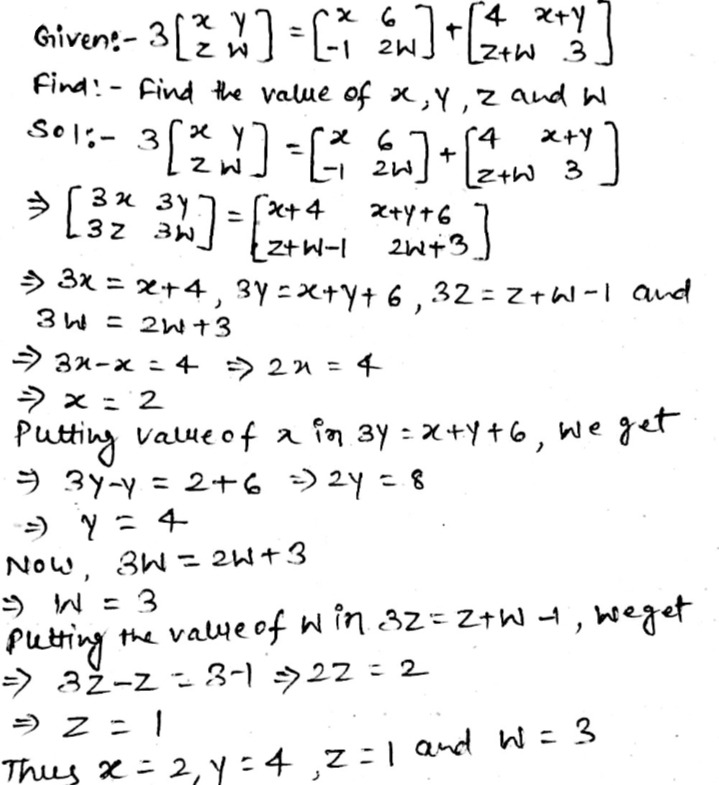 Given:- 3[x y z w] = [x 6 -1 2w] + [4 x+y z+w 3]
Find:- Find the value of x, y, z and w
Sol:- 3[x y z w] = [x 6 -1 2w] + [4 x+y z+w 3]
⇒ [3x 3y 3z 3w] = [x+4 x+y+6 z+w-1 2w+3]
⇒ 3x = x+4, 3y = x+y+6, 3z = z+w-1 and
3w = 2w+3
⇒ 3x-x = 4 ⇒ 2x = 4
⇒ x = 2
Putting value of x in 3y = x+y+6, we get
⇒ 3y-y = 2+6 ⇒ 2y = 8
⇒ y = 4
Now, 3w = 2w+3
⇒ w = 3
Putting the value of w in 3z = z+w-1, we get
⇒ 3z-z = 3-1 ⇒ 2z = 2
⇒ z = 1
Thus x = 2, y = 4, z = 1 and w = 3